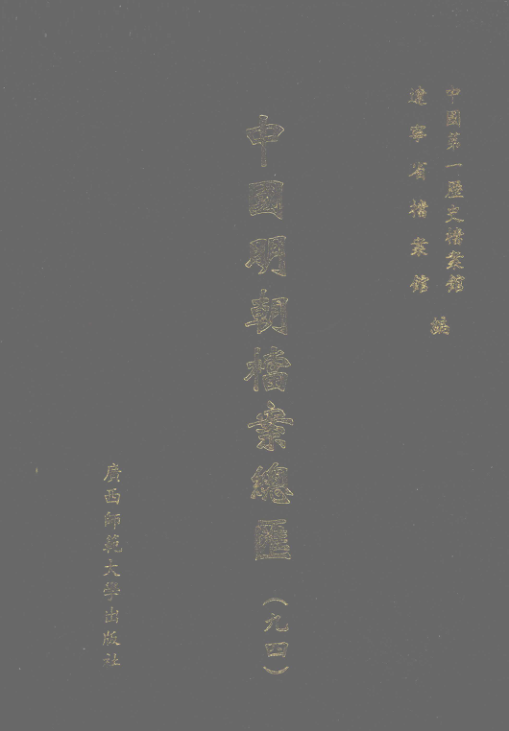 中國第一歷史檔案館
遼寧省檔案館
編
中國明朝檔案總匯
(九四)
廣西師範大学出版社